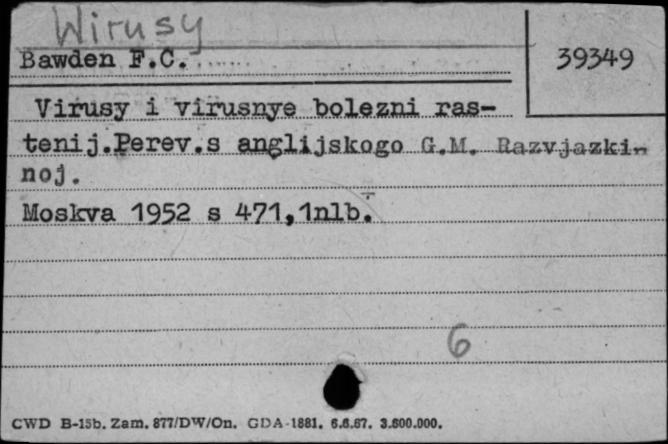 Wirusy
Bawden F.C.
39349
Virusy i virusnye bolezni ras-
tenij.Perev.s anglijskogo G.M. Razvjazki-
noj.
Moskva 1952 s 471,1nlb.
6
CWD B-15b. Zam. 877/DW/On. GDA-1881. 6.6.67. 3.600.000.